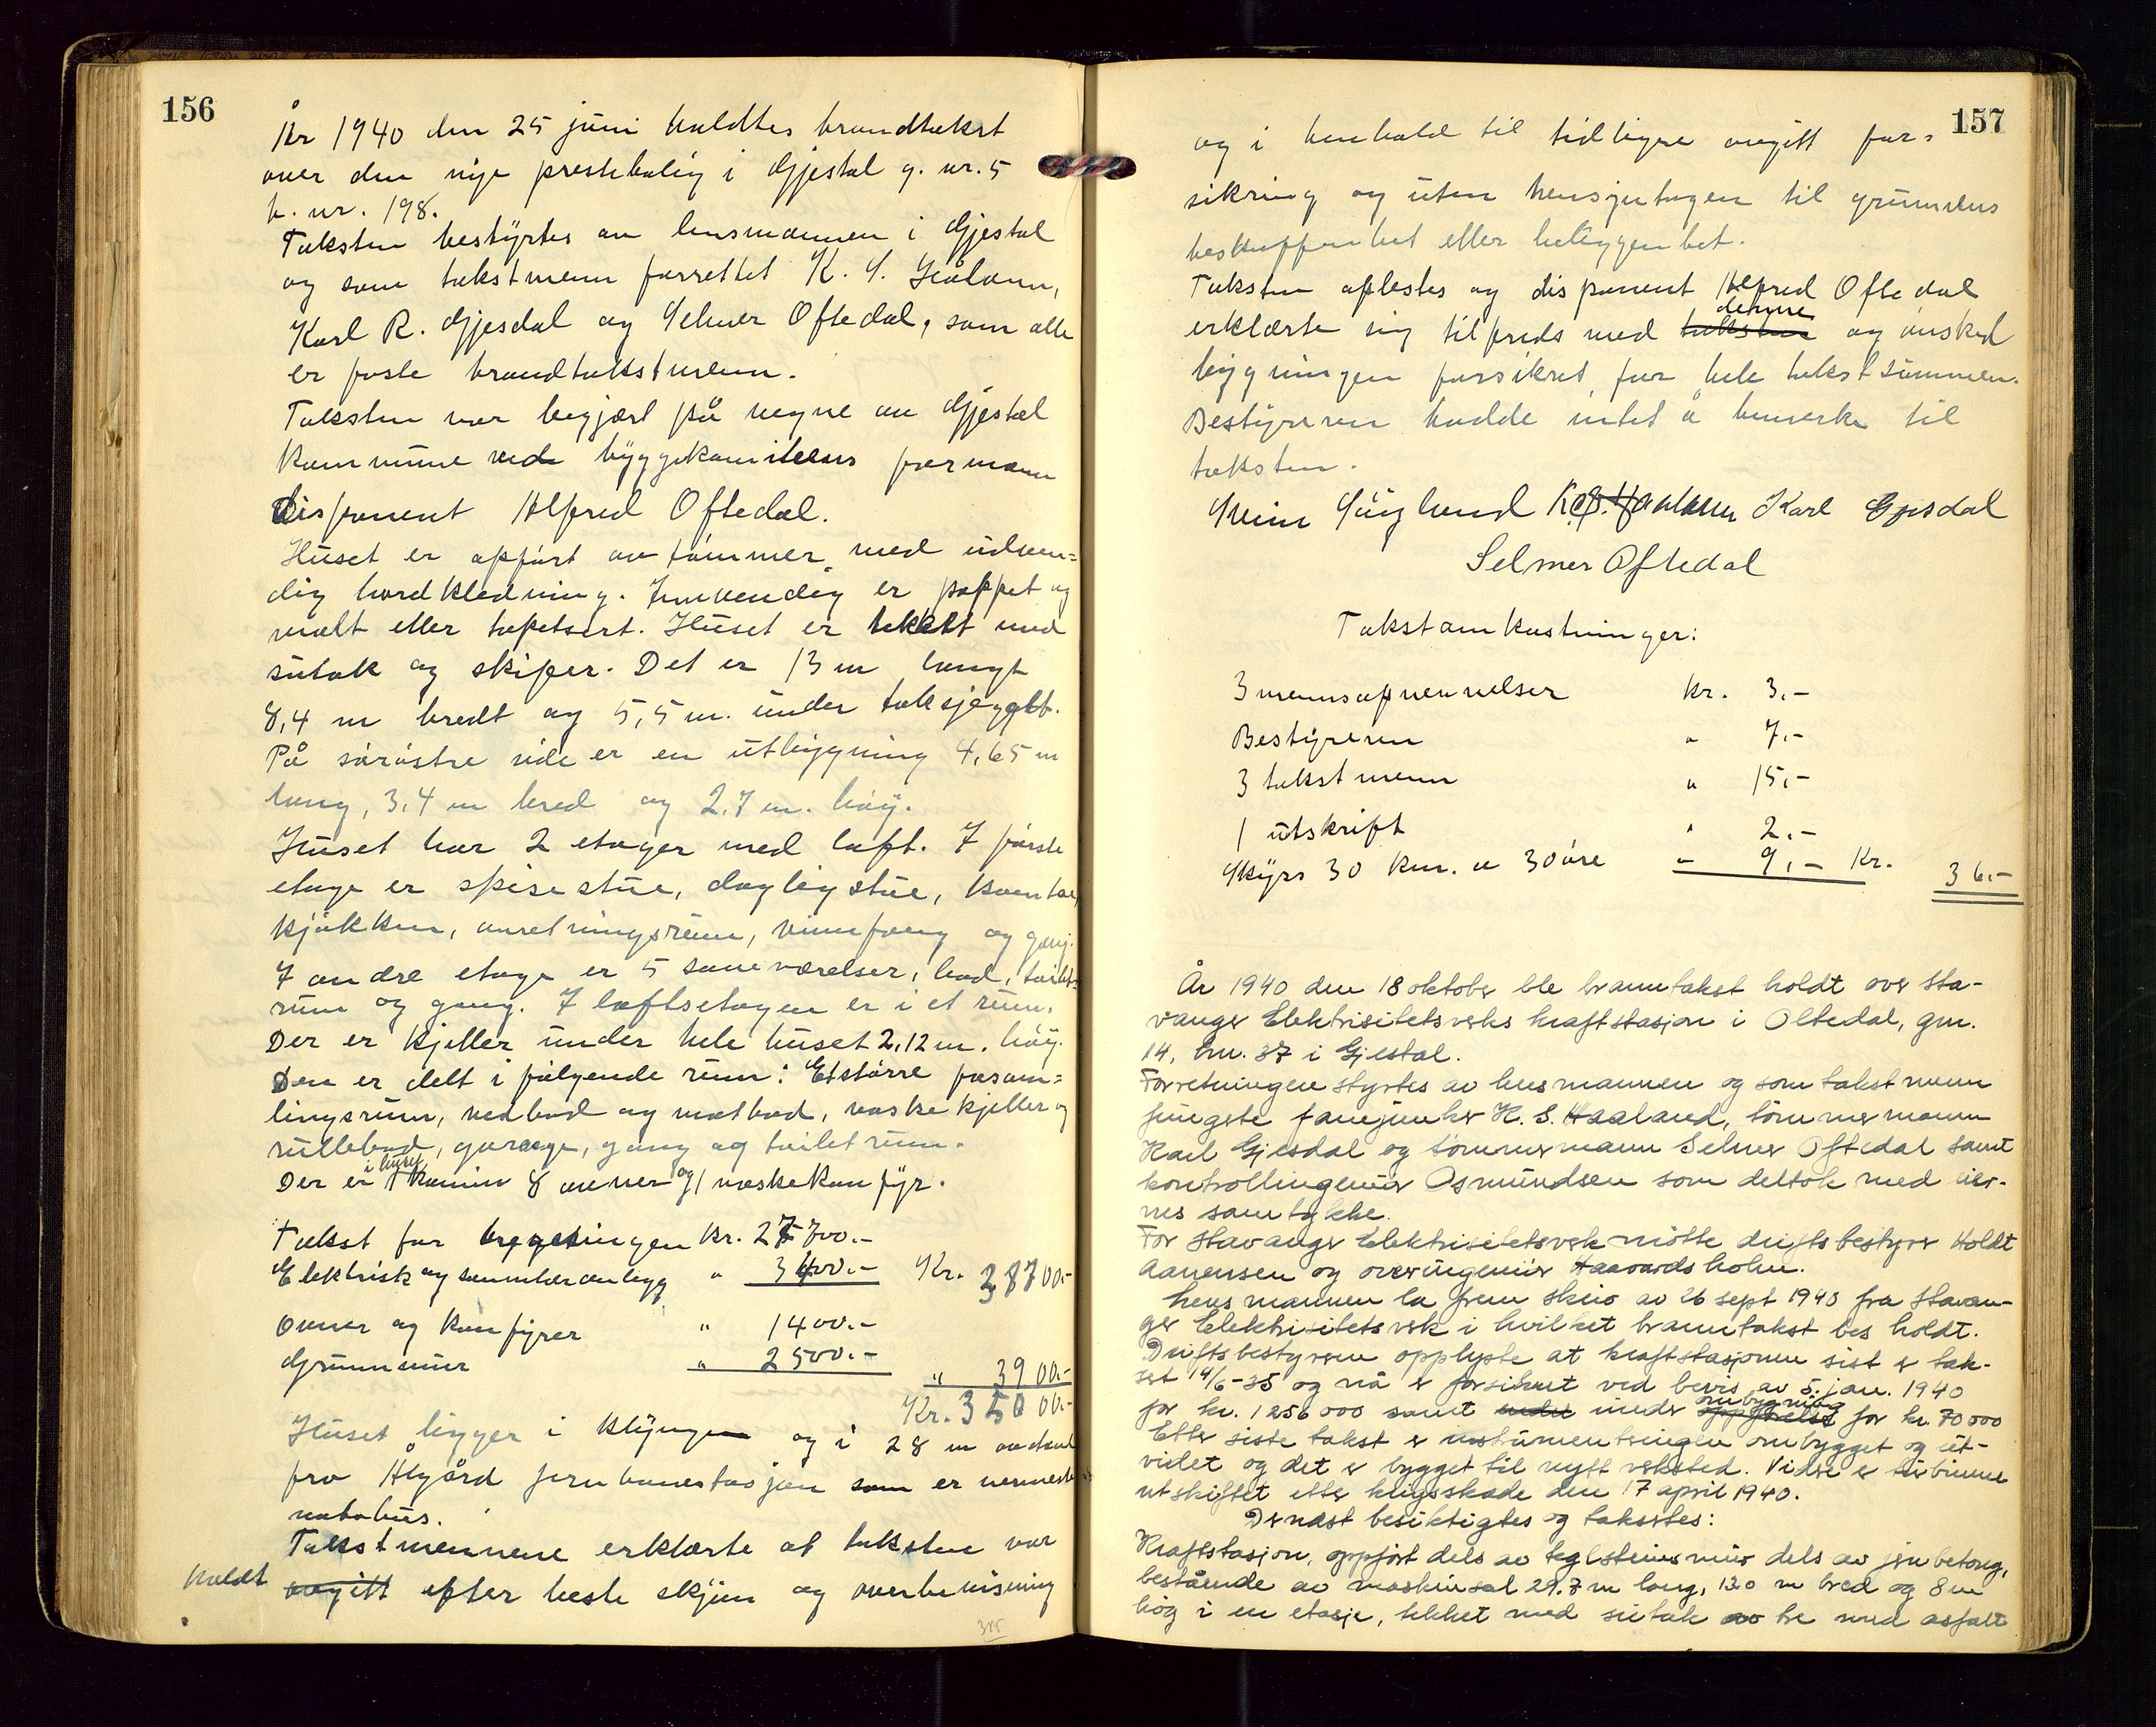 156
År 1940 den 25 juni holdtes brandtakst
over den nye prestebolig i Gjestal g. nr. 5
b. nr. 198.
Taksten bestyrtes av lensmannen i Gjestal
og som takstmenn forrettet K. S. Håland,
Karl R. Gjesdal og Selmer Oftedal, som alle
er faste brandtakstmenn.
Taksten var begjært på vegne av Gjestal
kommune ved byggekomiteens formann
disponent Alfred Oftedal.
Huset er oppført av tømmer med udven=
dig bordkledning. Innvendig er pappet og
malt eller tapetsert. Huset er tekket med
sutak og skifer. Det er 13 m langt
8,4 m bredt og 5,5 m. under taksjegget.
På sørøstre side er en utbygning 4,65 m
lang, 3,4 m bred og 2,7 m. høy.
Huset har 2 etager med loft. I første
etage er spisestue, dagligstue, kontor,
kjøkken, anretningsrum, vinnfang og gang.
I andre etage er 5 soveværelser, bad, toilet-
rum og gang. I loftsetagen er i et rum.
Der er kjeller under hele huset 2,12 m. høy.
Den er delt i følgende rum: Et større forsam=
lingsrum, vedbod og matbod, vaskekjeller og
rullebod, garage, gang og toiletrum.
i huset
Der er 1 kamin 8 ovner og 1 vaskekomfyr.
Takst for bygningen Kr. 27700.-
Elektrisk og sanitæranlegg " 3400.- Kr. 38700.-
Ovner og komfyrer " 1400.-
Grunnmur " 2500.-
" 3900.-
Kr. 35000.-
Huset ligger i klyngen og i 28 m avstand
fra Ålgård jernbanestasjon som er nermeste
nabohus.
Takstmennene erklærte at taksten var
holdt avgitt efter beste skjønn og overbevisning
385
157
og i henhold til tidligere avgitt for=
sikring og uten hensyntagen til grunnens
beskaffenhet eller beliggenhet.
Taksten oplestes og disponent Alfred Oftedal
denne
erklærte sig tilfreds med taksten og ønsked
bygningen forsikret for hele takstsummen.
Bestyreren hadde intet å bemerke til
taksten.
Svein K. S. Haaland Karl Gjesdal
Selmer Oftedal
Takstomkostninger:
3 mennsopnevnelser kr. 3.-
Bestyreren " 7.-
3 takstmenn " 15.-
1 utskrift " 2.-
Skyss 30 km. a 30 øre " 9.- Kr. 36.-
År 1940 den 18 oktober ble branntakst holdt over Sta-
vanger Elektrisitetsverks kraftstasjon i Oltedal, gnr.
14, bnr. 37 i Gjestal.
Forretningen styrtes av lensmannen og som takstmenn
fungerte fanejunker K. S. Haaland, tømmermann
Karl Gjesdal og tømmermann Selmer Oftedal samt
kontrollingeniør Osmundsen som deltok med eier-
nes samtykke.
For Stavanger Elektrisitetsverk møtte driftsbestyrer Holdt
Aanensen og overingeniør Haavardsholm.
Lensmannen la frem skriv av 26 sept 1940 fra Stavan-
ger Elektrisitetsverk i hvilket branntakst bes holdt.
Driftsbestyreren opplyste at kraftstasjonen sist er tak-
sert 14/6-35 og nå er forsikret ved bevis av 5. jan. 1940
ombygning
for kr. 1256000 samt under under oppførelse for kr. 70000
Etter siste takst er instrumenteringen ombygget og ut-
videt og det er bygget til nytt verksted. Videre er turbinene
utskiftet etter krigsskade den 17 april 1940.
Dernæst besiktigtes og taksertes:
Kraftstasjon, oppført dels av teglsteinsmur dels av jernbetong,
bestående av maskinsal 29.7 m lang, 13.0 m bred og 8 m
høg i en etasje, tekket med sutak av tre med asfalt